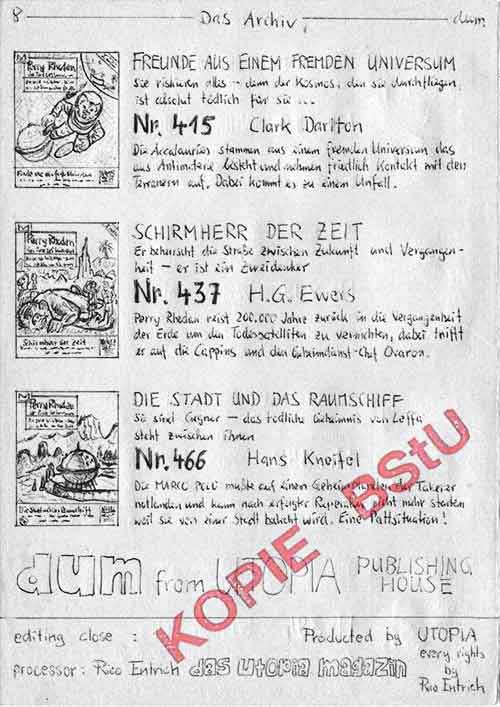 8 Das Archiv dum
Perry Rhodan
FREUNDE AUS EINEM FREMDEN UNIVERSUM
Sie riskieren alles – denn der Kosmos, den sie durchfliegen,
ist absolut tödlich für sie ...
Nr. 415 Clark Darlton
Die Accalauries stammen aus einem fremden Universum das
aus Antimaterie besteht und nehmen friedlich Kontakt mit den
Terranern auf. Dabei kommt es zu einem Unfall.
Perry Rhodan
Schirmherr der Zeit
SCHIRMHERR DER ZEIT
Er beherrscht die Straße zwischen Zukunft und Vergangen-
heit – er ist ein Zweidenker
Nr. 437 H.G. Ewers
Perry Rhodan reist 200.000 Jahre zurück in die Vergangenheit
der Erde um den Todessatelliten zu vernichten, dabei trifft
er auf die Cappins und den Geheimdienst-Chef Ovaron.
Perry Rhodan
Die Stadt und das Raumschiff
DIE STADT UND DAS RAUMSCHIFF
Sie sind Gegner – das tödliche Geheimnis von
steht zwischen ihnen
Nr. 466 Hans Kneifel
Die MARCO POLO mußte auf einem Geheimplaneten der Takerer
notlanden und kann nach erfolgter Reparatur nicht mehr starten
weil sie von einer Stadt bewacht wird. Eine Pattsituation!
KOPIE BStU
dum from UTOPIA PUBLISHING
HOUSE
editing close : Producted by UTOPIA
every rights
processor: Rico Entrich das utopia magazin by
Rico Entrich